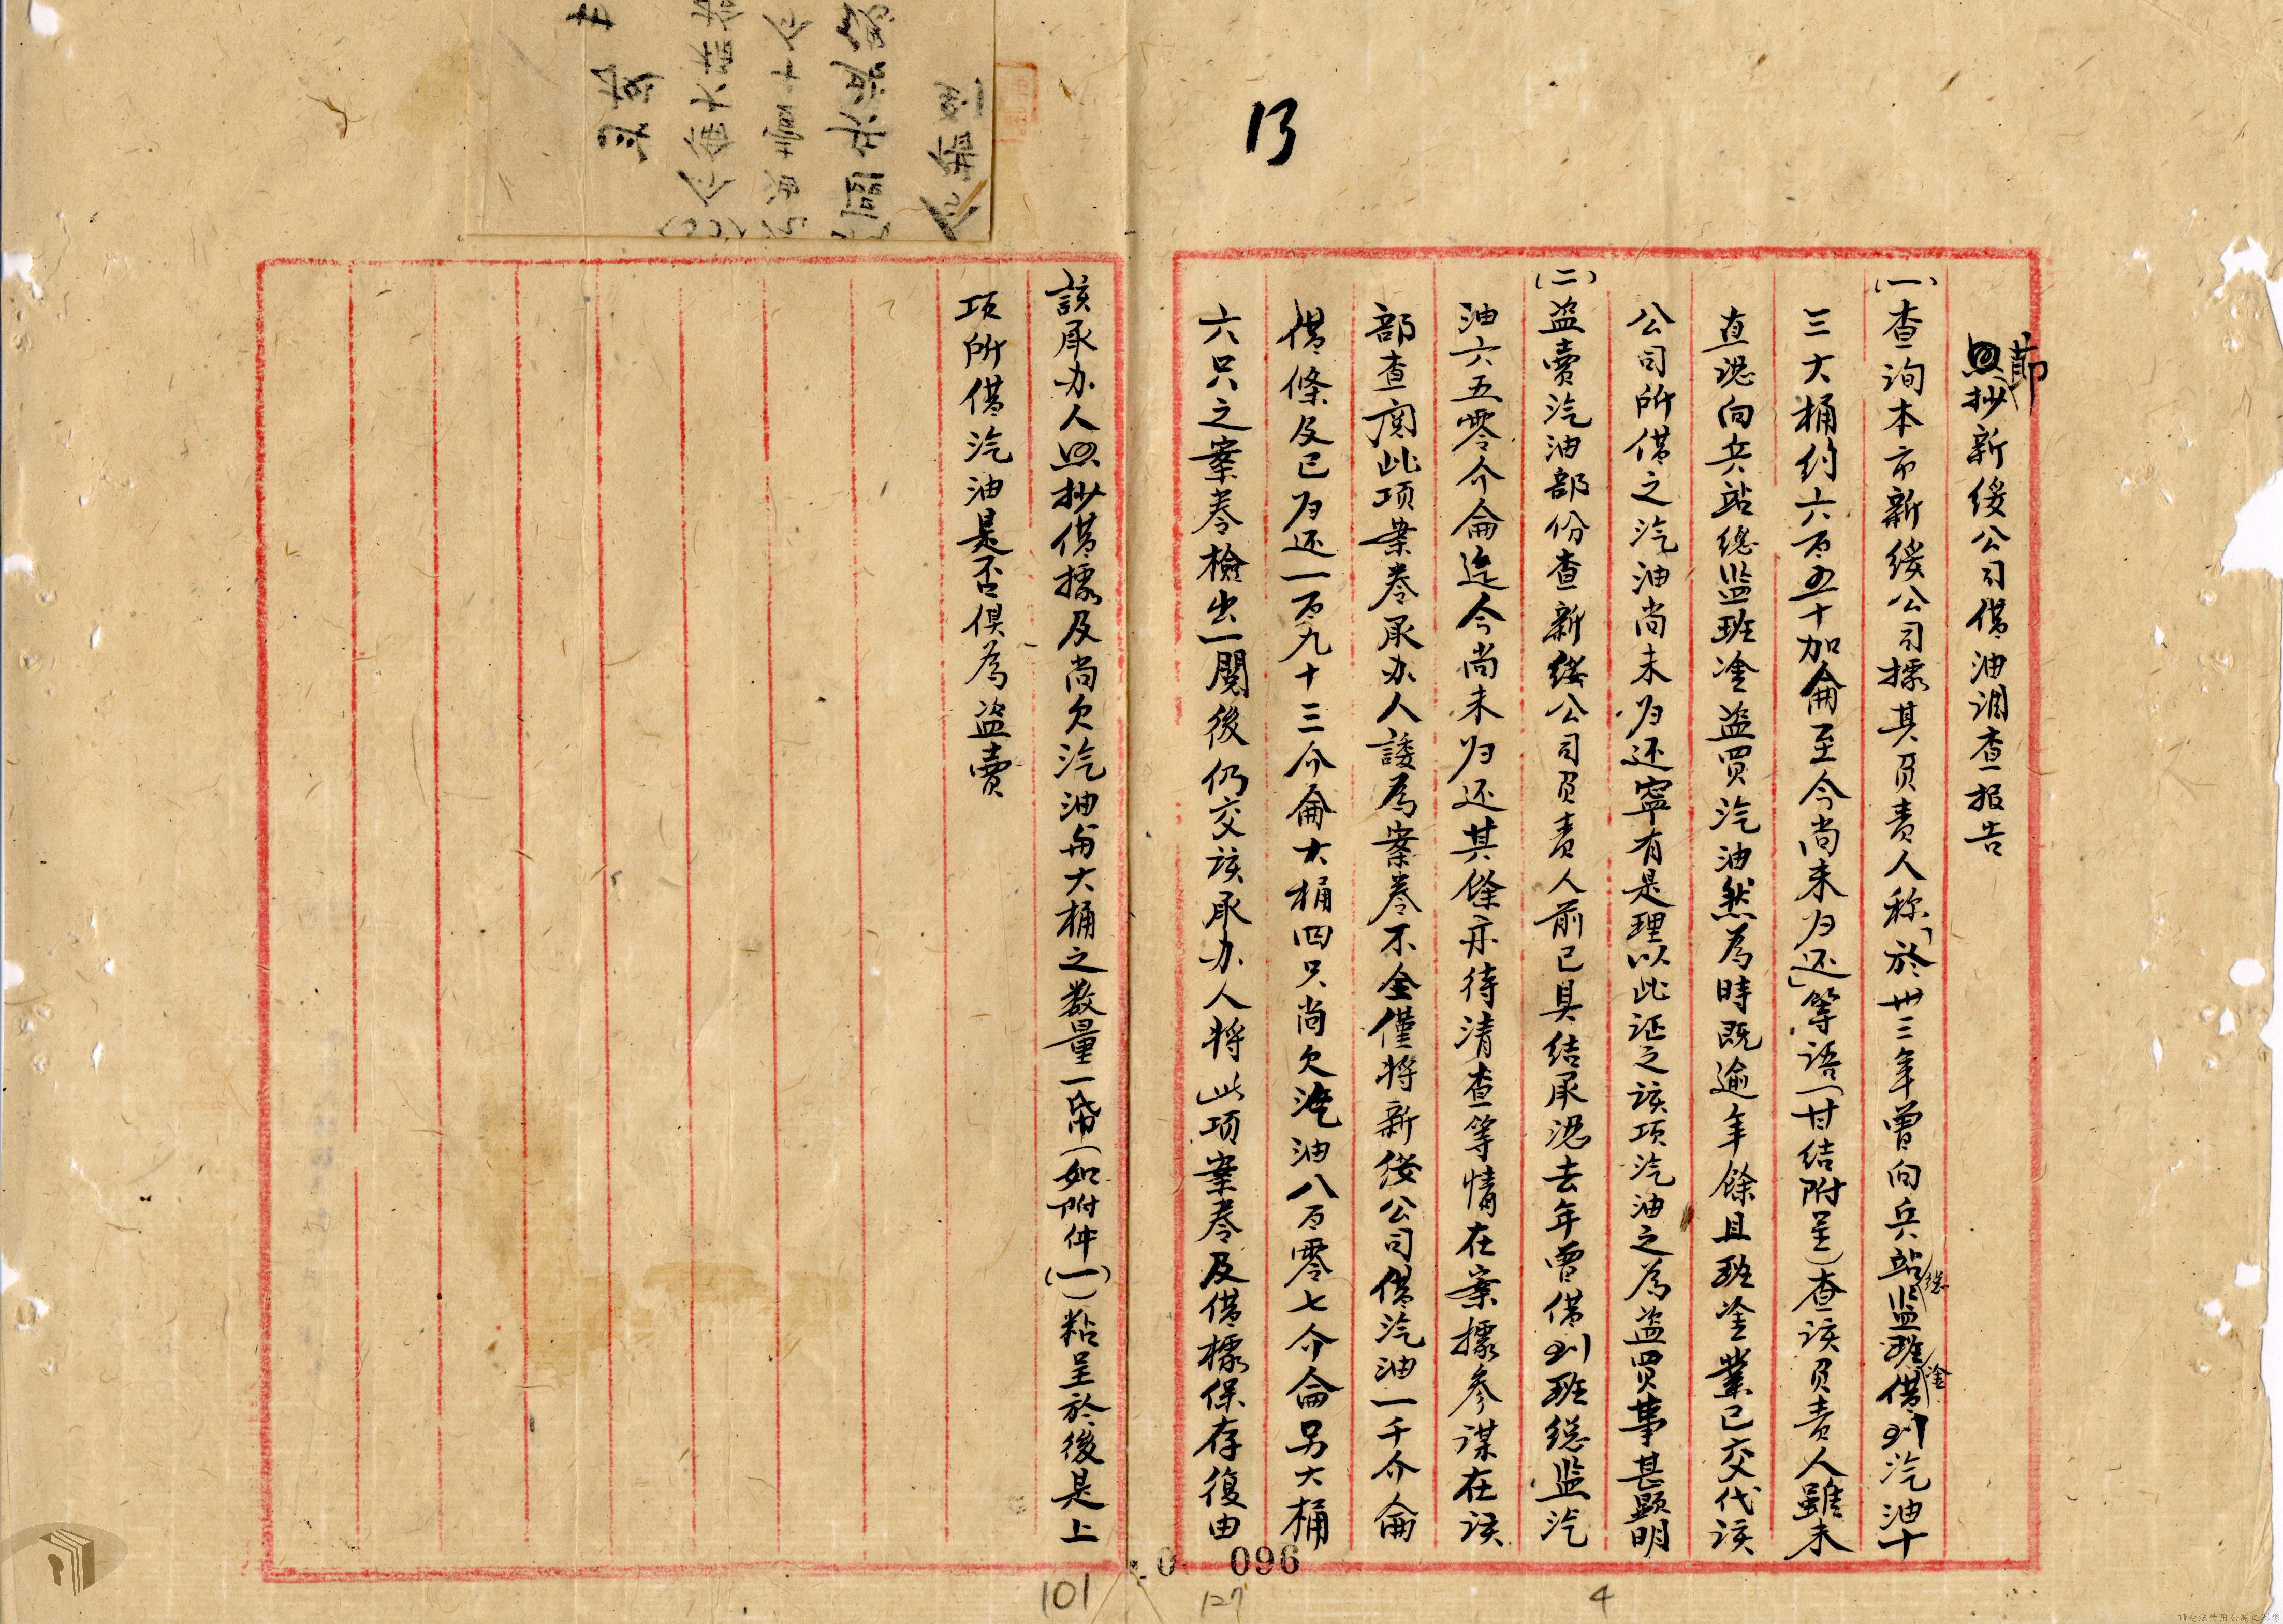 13
節
照抄新綏公司借油調查报告
(一)查询本市新綏公司據其負责人称「於卅三年曾向兵站總监班淦借到汽油十
三大桶约六百五十加侖至今尚未归还」等语(甘结附呈)查该負责人雖未
直認向兵站總监班淦盗買汽油然為時既逾年餘且班淦業已交代该
公司所借之汽油尚未归还寧有是理以此证之该项汽油之為盗買事甚顯明
(二)盗賣汽油部份查新綏公司負责人前已具结承認去年曾借到班總监汽
油六五零介侖迄今尚未归还其餘亦待清查等情在案據参谋在该
部查閱此项案卷承办人諉為案卷不全僅将新綏公司借汽油一千介侖
借條及已归还一百九十三介侖大桶四只尚欠汽油八百零七介侖另大桶
六只之案卷檢出一閱後仍交该承办人将此项案卷及借據保存復由
該承办人照抄借據及尚欠汽油与大桶之数量一帋(如附件(一))粘呈於後是上
项所借汽油是否俱為盗賣
0 096
101
127
4
請合法使用公開之影像